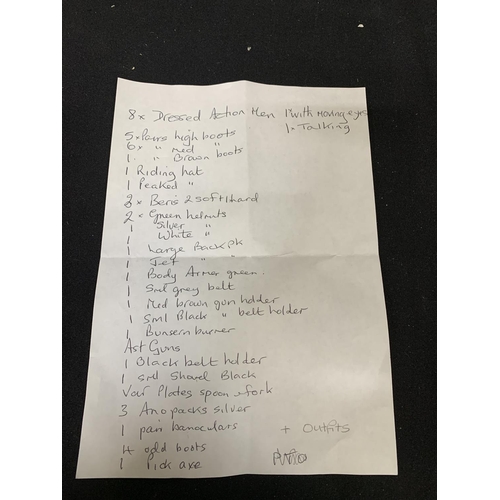 8x Dressed Action Men 1 with moving eyes
1x Talking
5x Pairs high boots
6x " med "
1. " Brown boots
1 Riding hat
1 Peaked "
3x Beris 2 soft 1 hard
2x Green helmuts
1 Silver "
1 White "
1 Large Back Pk
1 Jet " "
1 Body Armer green.
1 Sml grey belt
1 Med brown gun holder
1 Sml Black " belt holder
1 Bunsern burner
Ast Guns
1 Black belt holder
1 sml Shovel Black
Vair Plates spoon & fork
3 Amo packs silver
1 pair banoculars
+ Outfits
4 odd boots
1 Pick axe